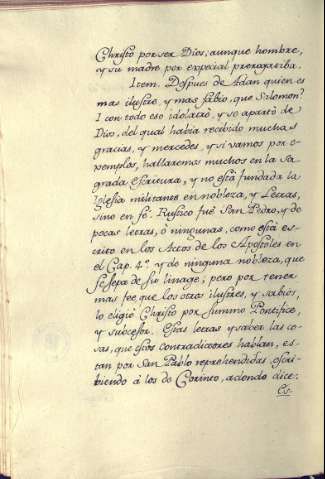 Christo por ser Dios, aunque hombre,
y su madre por especial prerogativa.
Item. Despues de Adan quien es
mas ilustre, y mas sabio, que Salomon?
I con todo eso idolatró, y se apartó de
Dios, del qual habia recibido muchas
gracias, y mercedes, y si vamos por e-
xemplos, hallaremos muchos en la sa-
grada escritura, y no está fundada la
Iglesia militante en nobleza, y Letras,
sino en fé. Rustico fué San Pedro, y de
pocas letras, ó ningunas, como está es-
crito en los Actos de los Apostoles en
el Cap. 4º y de ninguna nobleza, que
se sepa de su linage; pero por tener
mas fee que los otros ilustres, y sabios,
lo eligió Christo por summo Pontifice,
y succesor. Estas letras y saber las co-
sas, que estos contradictores hablan, es-
tan por San Pablo reprehendidas, escri-
biendo á los de Corinto, adonde dice: